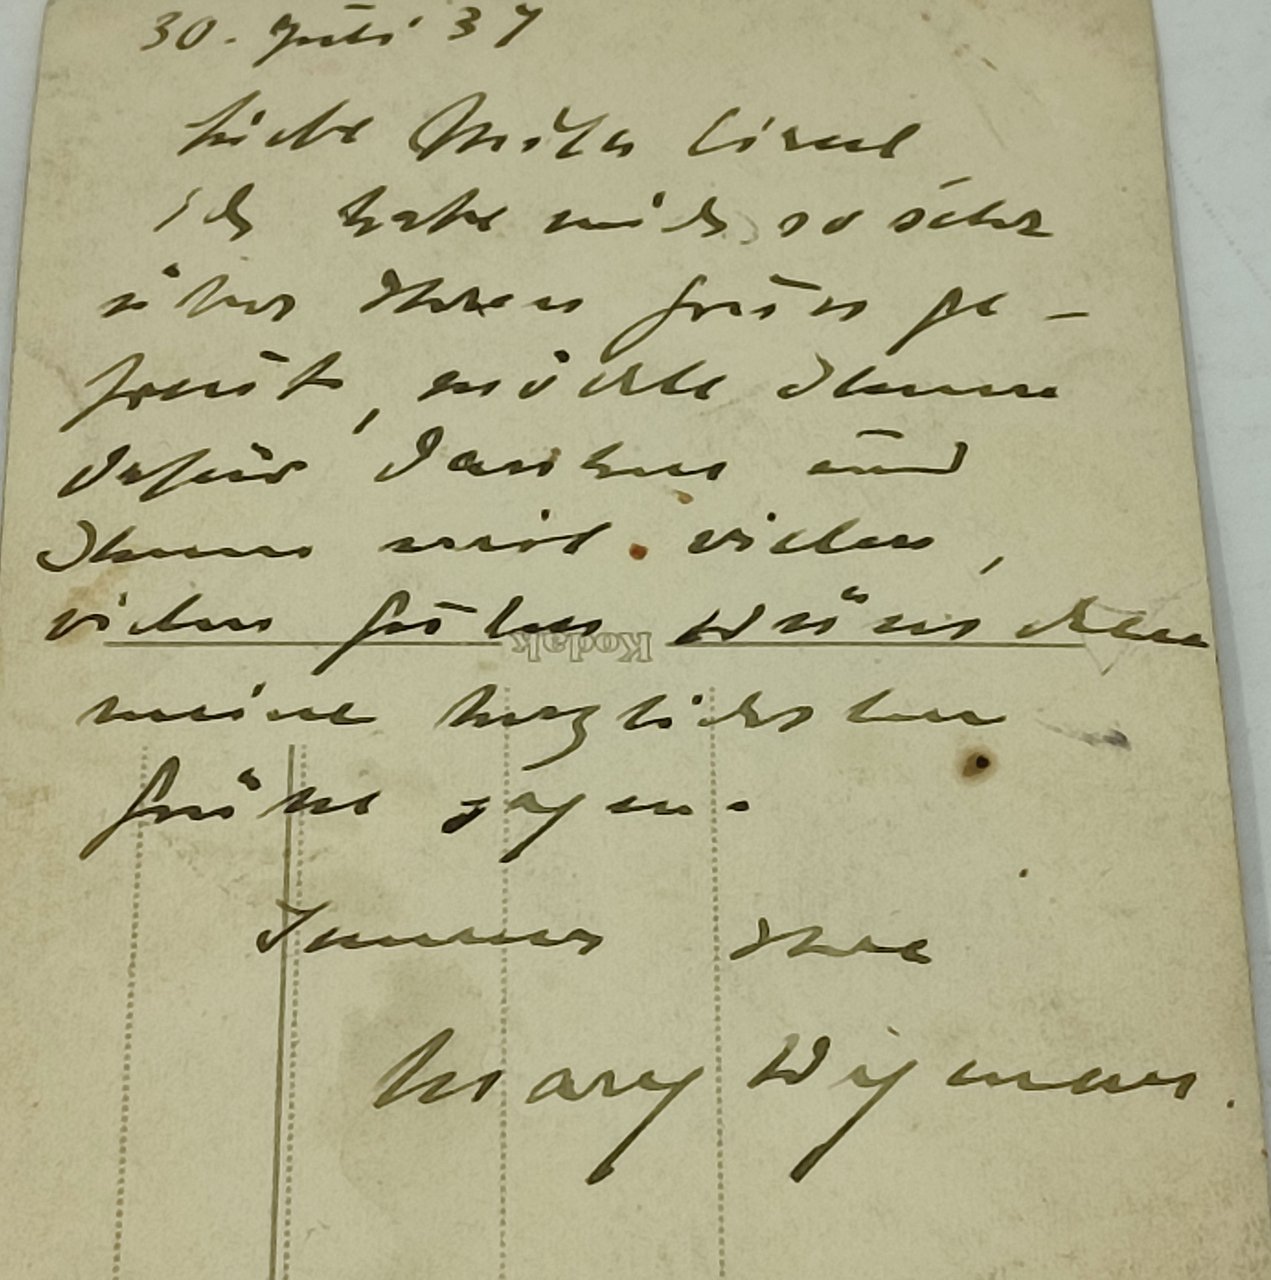 30. Juli 37
Liebe Mila Cirul
Ich habe mich so sehr
über Ihren Gruss ge-
freut, möchte Ihnen
dafür danken und
Ihnen mit vielen,
vielen guten Wünschen
Kodak
meine herzlichsten
Grüsse sagen.
Immer Ihre
Mary Wigman.